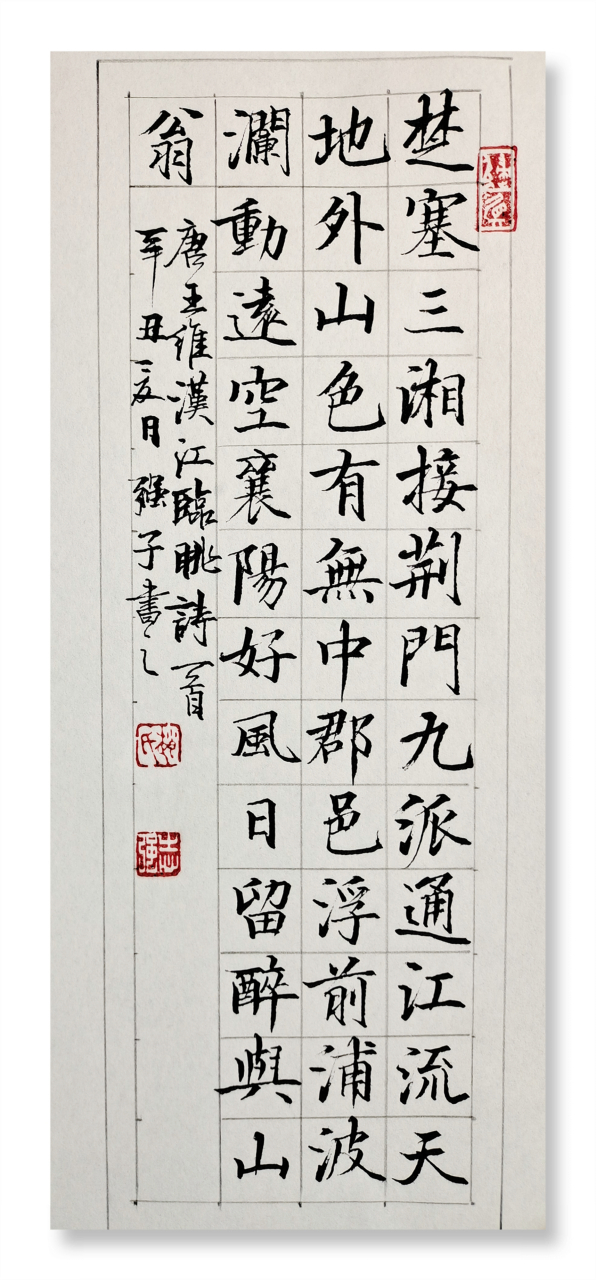 楚塞三湘接荆門九派通江流天
地外山色有無中郡邑浮前浦波
瀾動遠空襄陽好風日留醉與山
翁
唐王維漢江臨眺詩一首
辛丑夏日强子書之
趙氏
志强